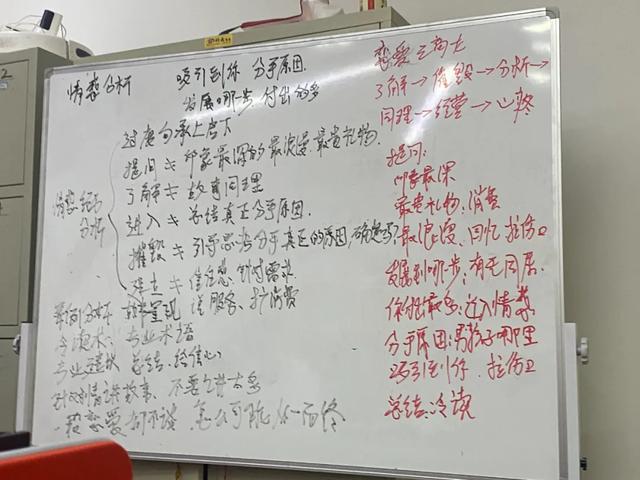 情感分析 吸引到你 分手原因
发展哪步 付出的多
过度句承上启下
提问 印象最深的 最浪漫 最贵礼物.
了解 故事同理
进入 总结真正分手原因.
摧毁 引导思考分手真正的原因,确定吗?
建立 信任感 针对需求
情感 分析
案例分析 效果呈现 送服务、扩消费
冷读术: 专业术语
专业建议 总结、给信心
针对剧情讲故事、不要
我恋爱都不谈 怎么可能从一而终
恋爱三高七
了解→摧毁→分析→
同理→经营→心疼
提问:
印象最深
最贵礼物:消费
最浪漫:回忆 拉伤口
发展到哪步:有无同居
你付出最多:进入情感
分手原因:男孩子哪里
吸引到你.拉伤口
总结:冷读